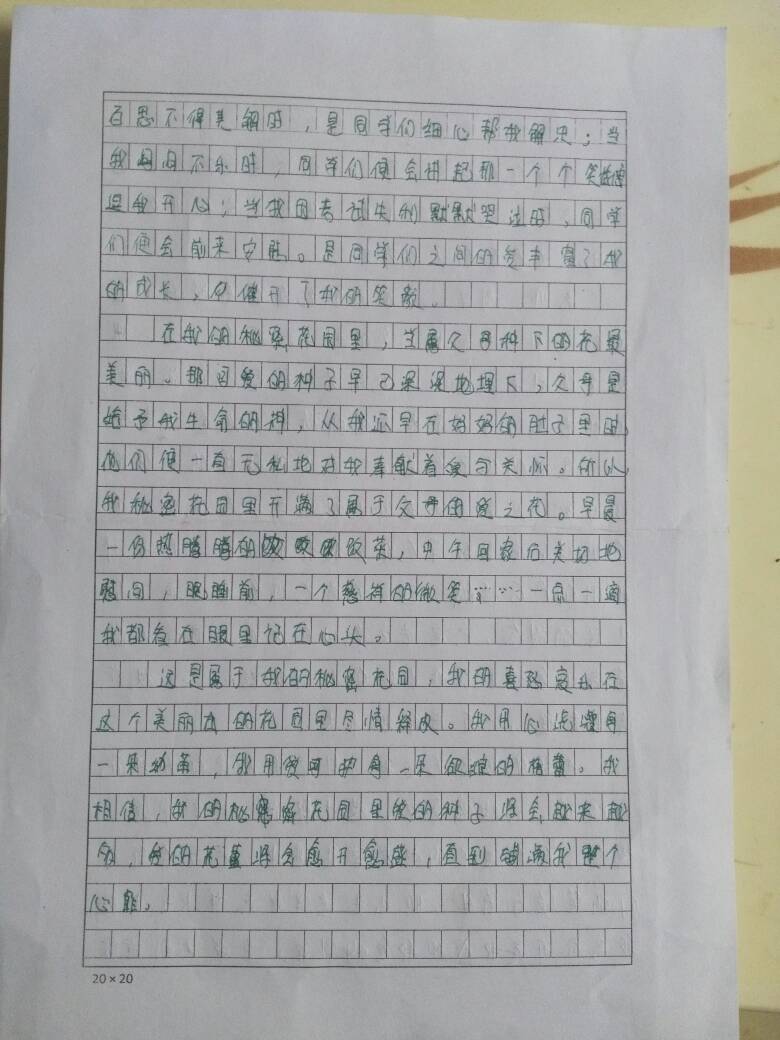 百思不得其解时，是同学们细心帮我解决；当
我闷闷不乐时，同学们便会讲起那一个个笑话逗
逗我开心；当我因考试失利默默哭泣时，同学
们便会前来安慰。是同学们之间的爱丰富了我
的成长，也催开了我的笑颜。
在我的秘密花园里，当属父母种下的花最
美丽。那因爱的种子早已深深地埋下，父母是
给予我生命的神，从我还早在妈妈的肚子里时
他们便一直无私地对我奉献着爱与关怀。所以
我秘密花园里开满了属于父母的爱之花。早晨
一份热腾腾的饭菜，中午回家后关切地
慰问，睡前，一个慈祥的微笑……一点一滴
我都看在眼里记在心头。
这是属于我的秘密花园，我的喜怒哀乐在
这个美丽的花园里尽情释放。我用心浇灌每
一朵幼苗，我用爱呵护每一朵欲绽的植蕾。我
相信，我的秘密花园里爱的种子将会越来越
多，爱的花蕾将会愈开愈盛，直到铺满我整个
心能。
20×20